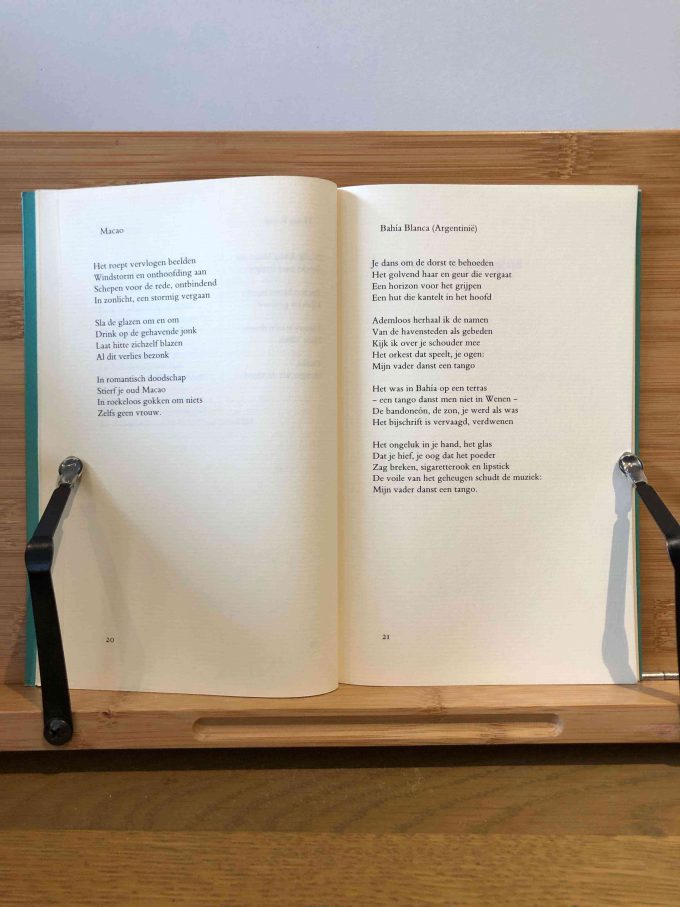 Macao
Het roept vervlogen beelden
Windstorm en onthoofding aan
Schepen voor de rede, ontbindend
In zonlicht, een stormig vergaan
Sla de glazen om en om
Drink op de gehavende jonk
Laat hitte zichzelf blazen
Al dit verlies bezonk
In romantisch doodschap
Stierf je oud Macao
In roekeloos gokken om niets
Zelfs geen vrouw.
20
Bahía Blanca (Argentinië)
Je dans om de dorst te behoeden
Het golvend haar en geur die vergaat
Een horizon voor het grijpen
Een hut die kantelt in het hoofd
Ademloos herhaal ik de namen
Van de havensteden als gebeden
Kijk ik over je schouder mee
Het orkest dat speelt, je ogen:
Mijn vader danst een tango
Het was in Bahía op een terras
– een tango danst men niet in Wenen –
De bandoneón, de zon, je werd als was
Het bijschrift is vervaagd, verdwenen
Het ongeluk in je hand, het glas
Dat je hief, je oog dat het poeder
Zag breken, sigaretterook en lipstick
De voile van het geheugen schudt de muziek:
Mijn vader danst een tango.
21